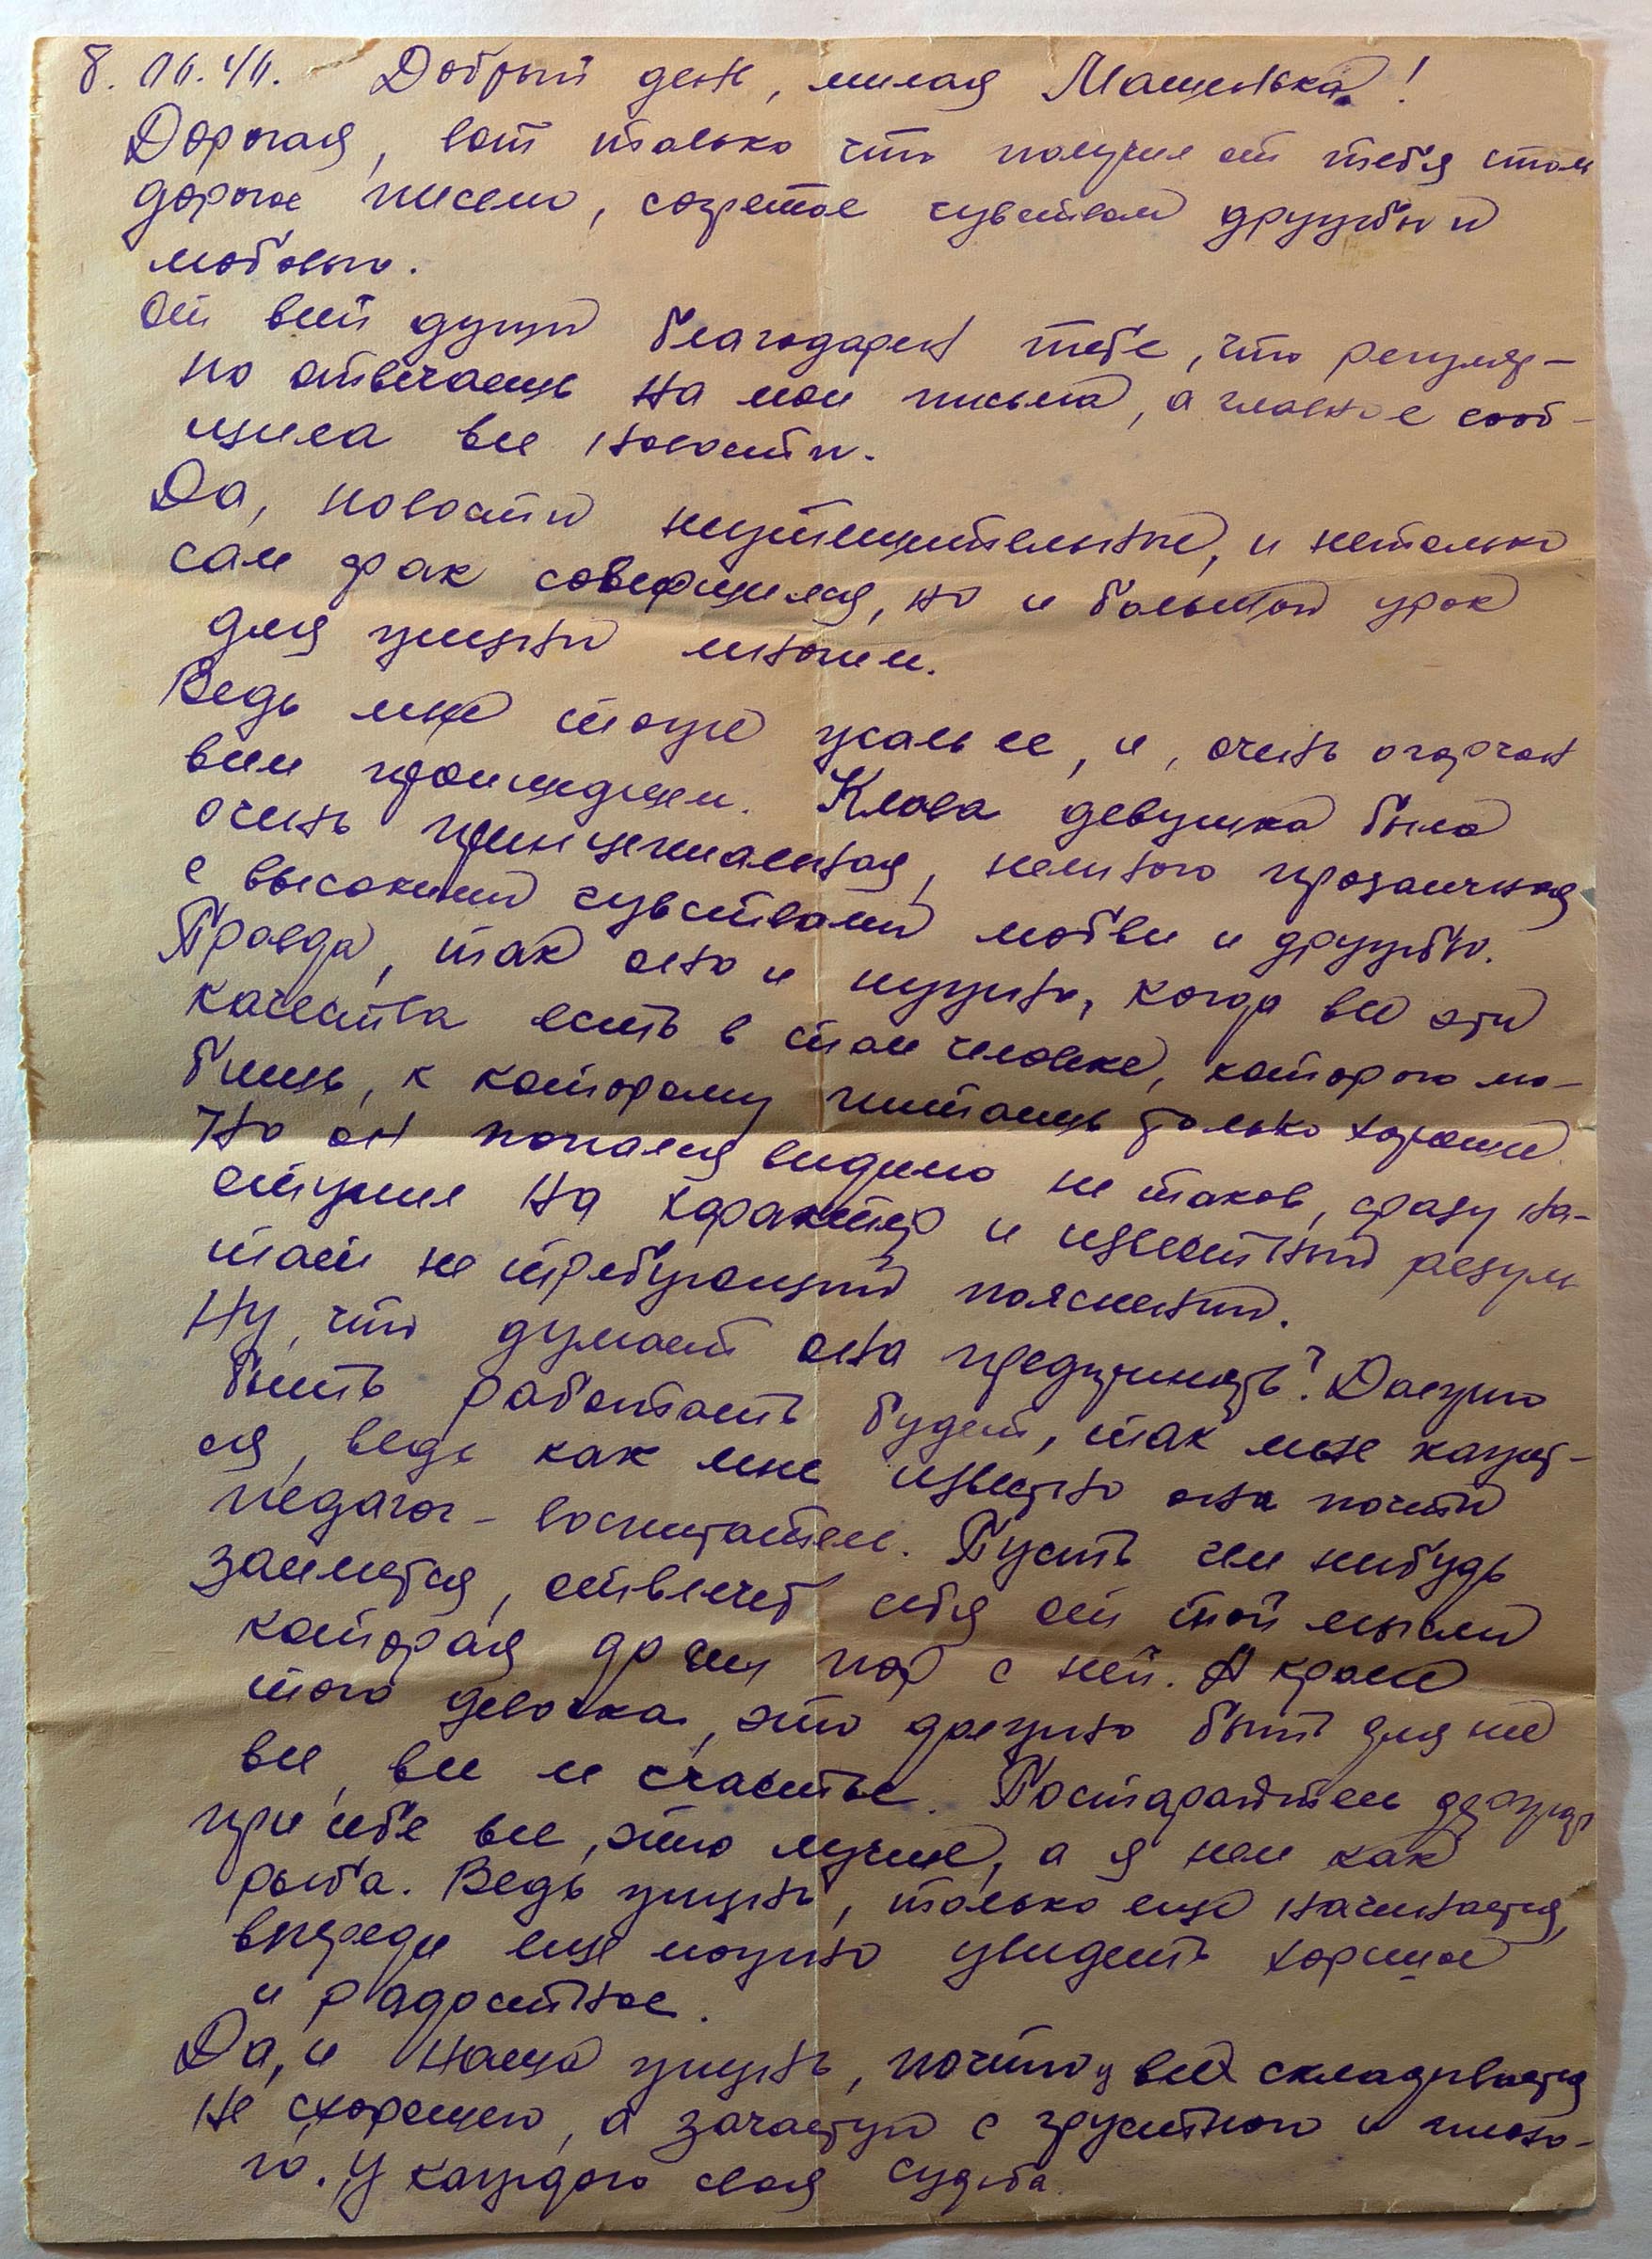 Добрый день, милая Машенька!
Дорогая, вот только что получил от тебя столь
дорогое письмо, согретое чувством дружбы и
любовью.
От всей души благодарен тебе, что регуляр-
но отвечаешь на мои письма, а главное сооб-
щила все новости.
Да, новости неутешительные, и нетолько
сам факт совершился, но и большой урок
для жизни многим.
Ведь мне тоже жаль ее, и, очень огорчен
всем происшедшем. Клава девушка была
очень принципиальная, немного прозаичная
с высокими чувствами любви и дружбы.
Правда, так оно и нужно, когда все эти
качества есть в том человеке, которого лю-
бишь, к которому питаешь только хорошее.
Но он попался видимо не таков, сразу на-
ступил на характер и известный резуль
тат не требующий пояснений.
Ну, что думает она предпринять? Должно
быть работать будет, так мне кажет-
ся, ведь как мне известно она почти
педагог - воспитатель. Пусть чем нибудь
займется, отвлечет себя от той мысли
которая до сих пор с ней. А кроме
того девочка, это должно быть для неё
все, все и счастье. Постарайтесь
при себе все, это лучше, а я нем как
рыба. Ведь жизнь, только еще начинается,
впереди еще можно увидеть хорошее
и радостное.
Да, и наша жизнь, почти у всех складывается
не схорошего, а зачастую с грустного и плохо-
го. У каждого своя судьба.